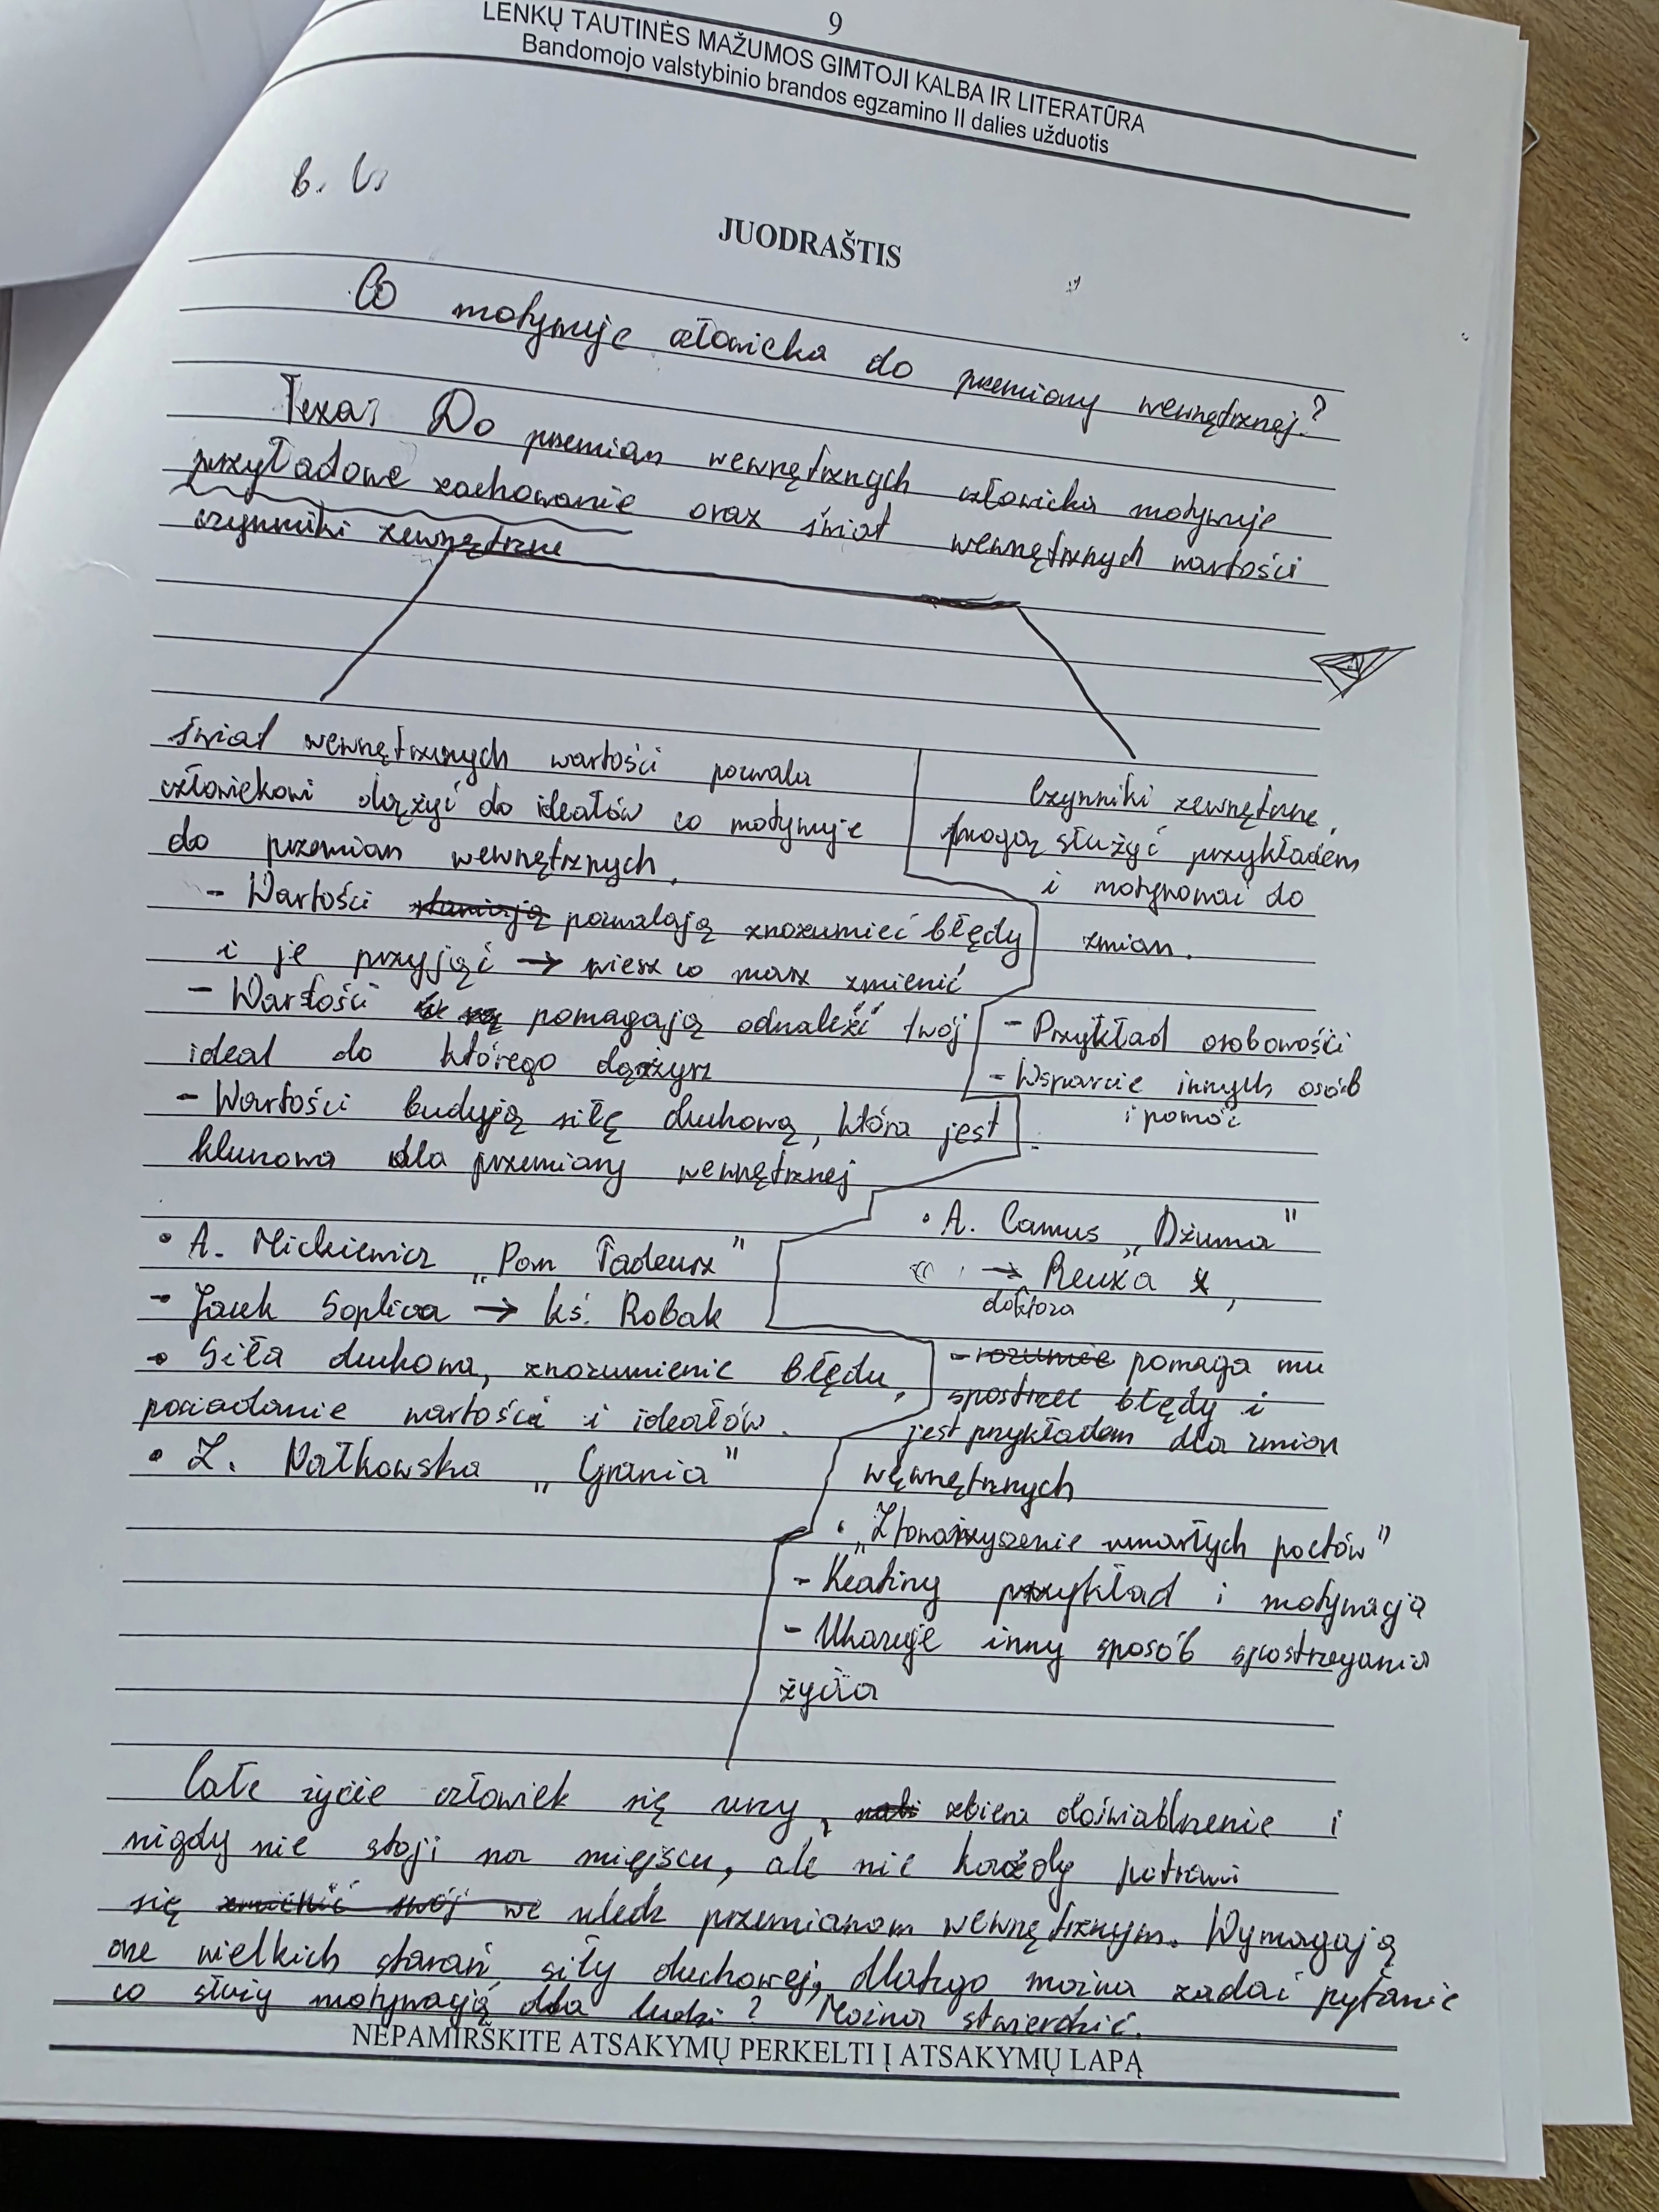 9
LENKŲ TAUTINĖS MAŽUMOS GIMTOJI KALBA IR LITERATŪRA
Bandomojo valstybinio brandos egzamino II dalies užduotis
JUODRAŠTIS
Co motywuje człowieka do przemiany wewnętrznej?
Teza: Do przemian wewnętrznych człowieka motywuje
przykładowe zachowanie oraz świat wewnętrznych wartości
czynniki zewnętrzne
świat wewnętrznych wartości pozwala
człowiekowi dążyć do ideałów co motywuje
do przemian wewnętrznych.
- Wartości pozwalają zrozumieć błędy
i je przyjąć → wiesz co masz zmienić
- Wartości pomagają odnaleźć twój
ideal do którego dążysz
- Wartości budują siłę duchową, która jest
kluczowa dla przemiany wewnętrznej
• A. Mickiewicz „Pan Tadeusz"
- Jacek Soplica → ks. Robak
• Siła duchowa, zrozumienie błędu,
posiadanie wartości i ideałów.
• Z. Nałkowska „Granica"
Czynniki zewnętrzne,
mogą służyć przykładem
i motywować do
zmian.
- Przykład osobowości
- Wsparcie innych osób
i pomoc
• A. Camus „Dżuma"
→ Reuxa
doktora
- rozumee pomaga mu
spostrzec błędy i
jest przykładem dla zmian
węwnętrznych
• „Stowarzyszenie umarłych poetów"
- Keating przykład i motywacja
- Ukazuje inny sposób spostrzegania
życia
Całe życie człowiek się uczy, zbiera doświadczenie i
nigdy nie stoji na miejscu, ale nie każdy potrawi
się zmienić swój we uledz przemianom wewnętrznym. Wymagają
one wielkich starań, siły duchowej, dlatego można zadać pytanie
co służy motywacją dla ludzi? Można stwierdzić.
NEPAMIRŠKITE ATSAKYMŲ PERKELTI Į ATSAKYMŲ LAPĄ